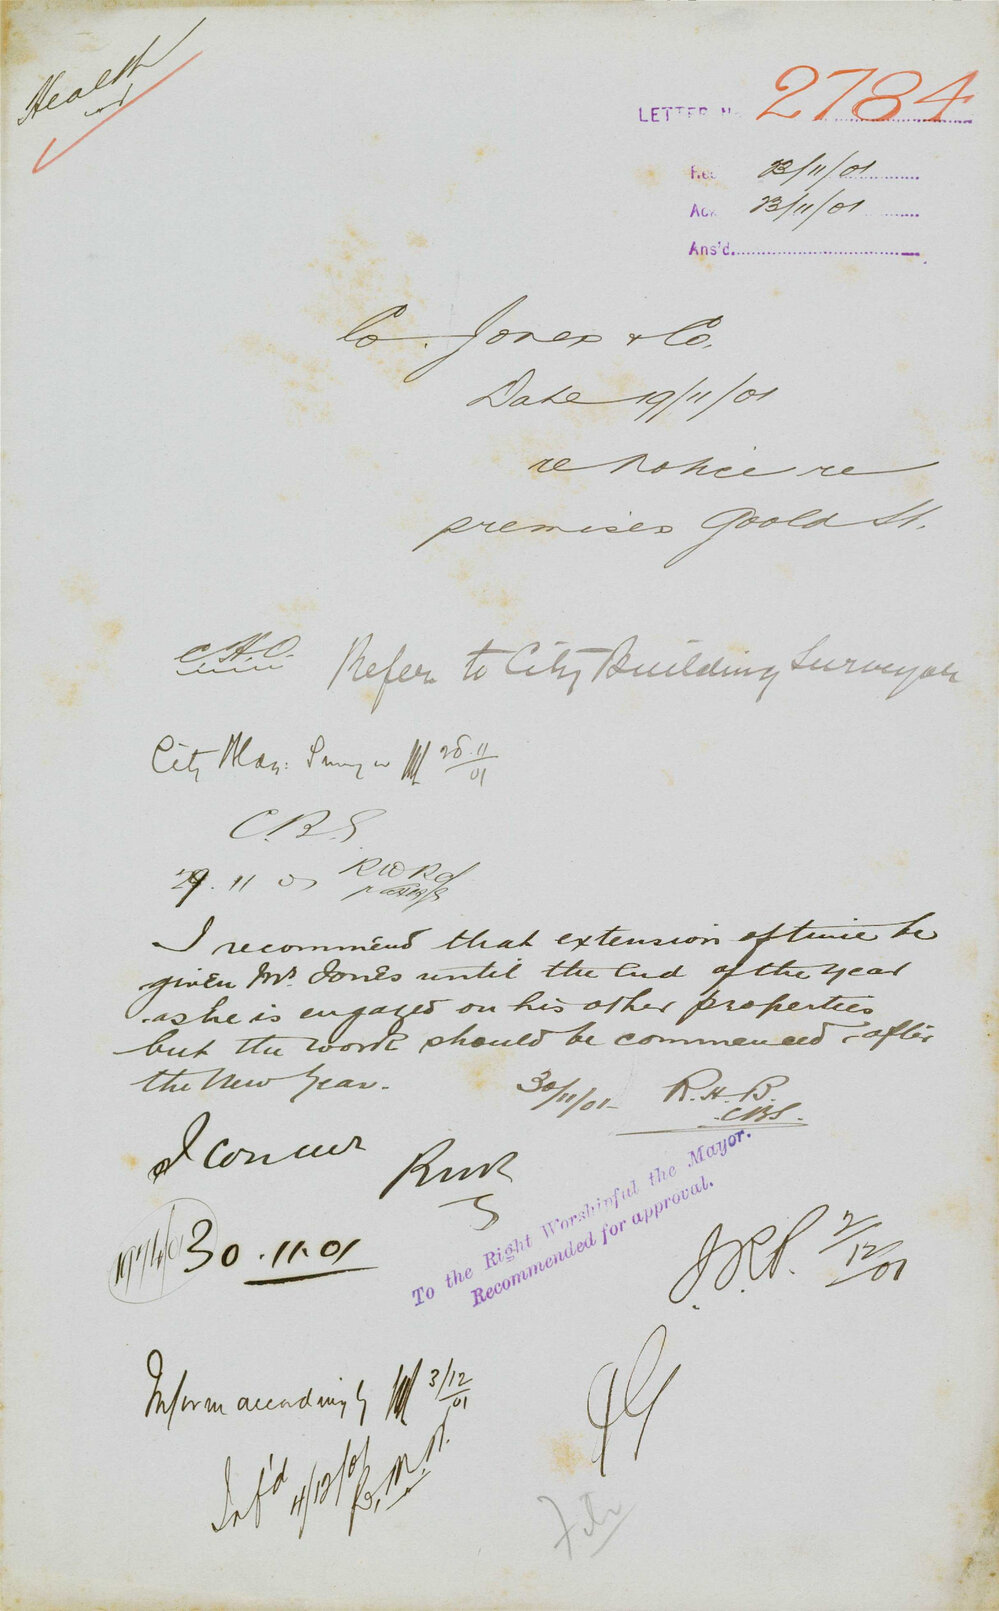 Health
LETTER No 2784
Rec 23/11/01
Ack 23/11/01
Ans'd.
Co. Jones & Co.
Date 19/11/01
re Notice re
premises Goold St.
C.H.O. Refer to City Building Surveyor
City Bldg: Surveyor 28.11/01
C.B.S.
29.11.01
I recommend that extension of time be
given Mr. Jones until the End of the Year
as he is engaged on his other properties
but the work should be commenced after
the New Year.
30/11/01 R.H.B.
CBS.
I concur
30.11.01
To the Right Worshipful the Mayor.
Recommended for approval.
2/12/01
Inform accordingly 3/12/01
Inf'd 4/12/01
File